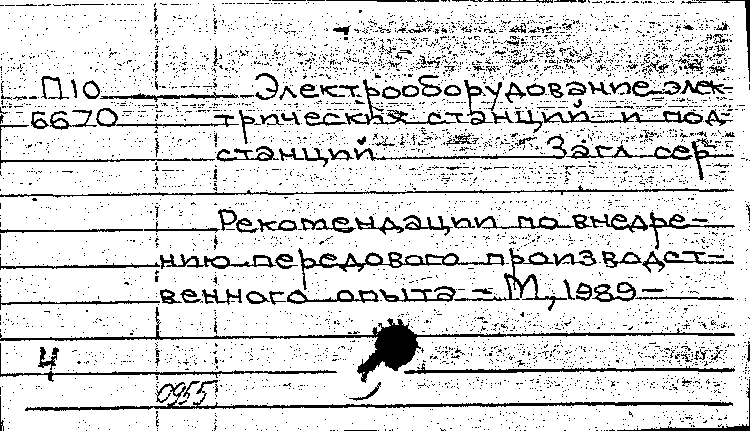 П10 Электрооборудование элек-
6670 трических станций и под-
станций Загл сер
Рекомендации по внедре-
нию передового производст-
венного опыта - М, 1989-
4
0955